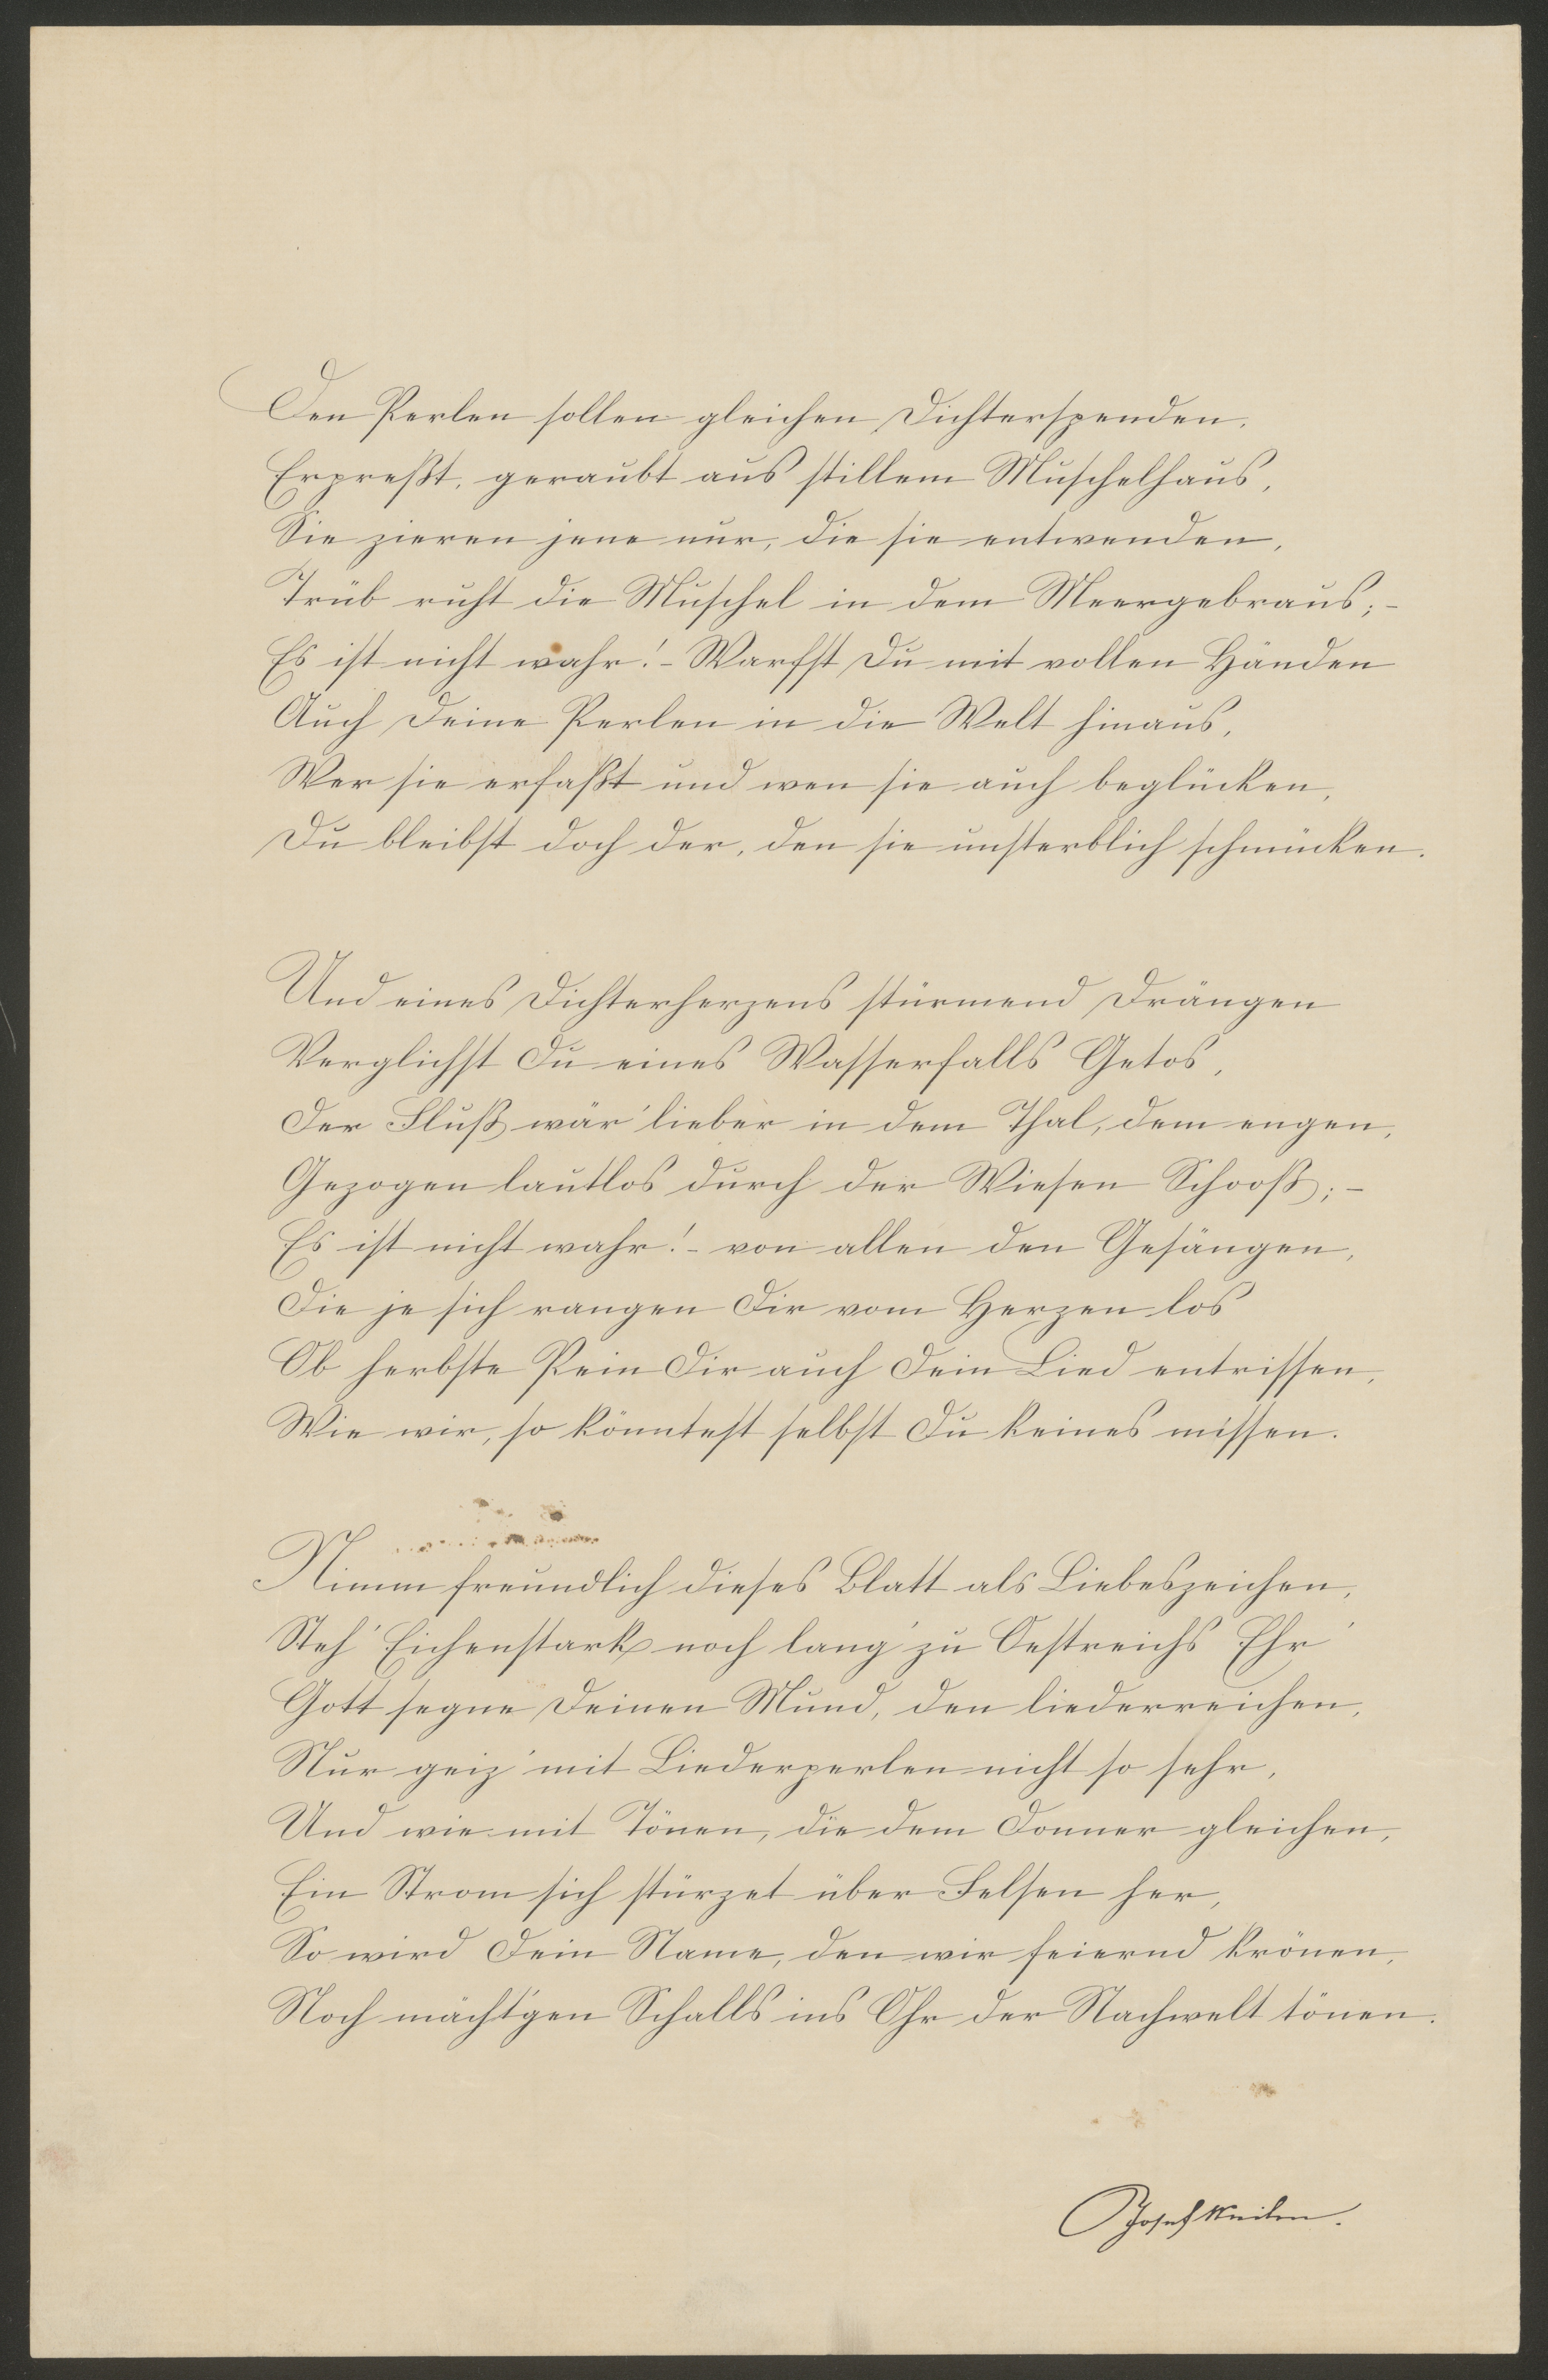 Den Perlen sollen gleichen Dichterspenden,
Erpreßt, geraubt aus stillem Muschelhaus,
Sie zieren jene nur, die sie entwenden,
Trüb ruht die Muschel in dem Meergebraus; –
Es ist nicht wahr! – Warfst Du mit vollen Händen
Auch Deine Perlen in die Welt hinaus,
Wer sie erfaßt und wen sie auch beglücken,
Du bleibst doch der, den sie unsterblich schmücken.
Und eines Dichterherzens stürmend Drängen
Verglichst Du eines Wasserfalls Getos,
Der Fluß wär' lieber in dem Thal, dem engen,
Gezogen lautlos durch der Wiesen Schooß; –
Es ist nicht wahr! – von allen den Gesängen,
Die je sich rangen Dir vom Herzen los
Ob herbste Pein Dir auch Dein Lied entrissen,
Wie wir, so könntest selbst Du keines missen.
Nimm freundlich dieses Blatt als Liebeszeichen,
Steh' Eichenstark noch lang' zu Oestreichs Ehr'
Gott segne Deinen Mund, den liederreichen,
Nur geiz' mit Liederperlen nicht so sehr,
Und wie mit Tönen, die dem Donner gleichen,
Ein Strom sich stürzet über Felsen her,
So wird Dein Name, den wir feiernd krönen,
Noch mächt'gen Schalls ins Ohr der Nachwelt tönen.
Josef Weilen.